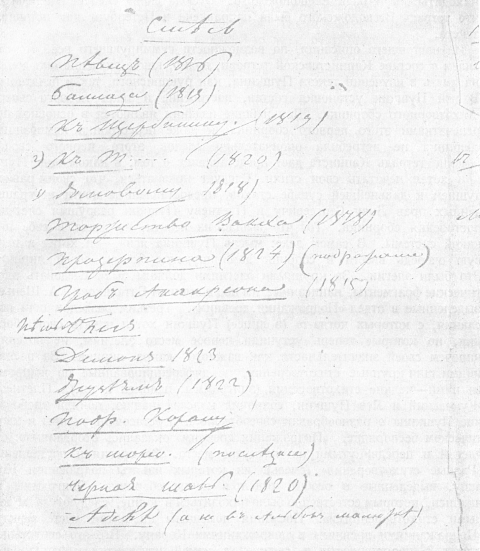 Смѣсь
Пѣвецъ (1816)
Баллада (1819)
Къ Щербинину. (1819)
2) Къ Т..... (1820)
1) Домовому 1818)
Торжество Вакха (1818)
Прозерпина (1824) (подражание)
Гробъ Анакреона (1815)
Демонъ 1823
Друзьямъ (1822)
Подр. Корану
Къ морю. (послѣднее)
Черная шаль. (1820)
Адели (а не въ Альбомъ малютки)